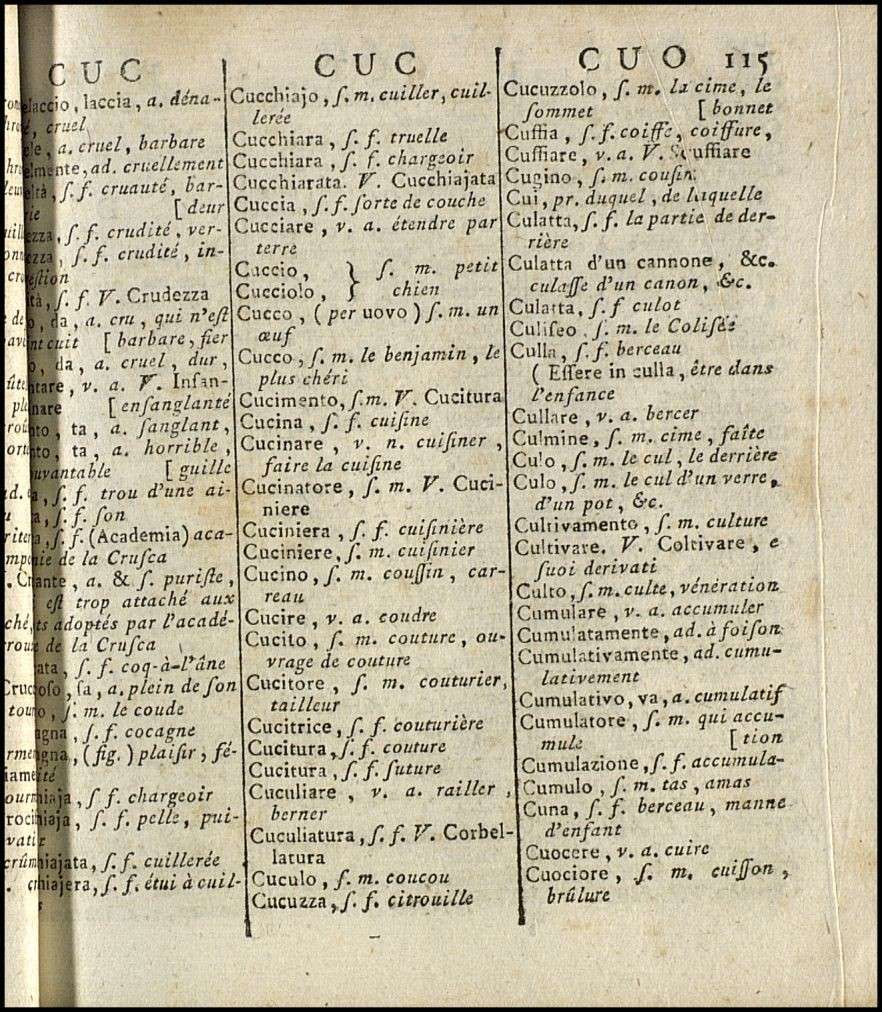 CUC
laccio, laccia, a. déna-
, cruel
a. cruel, barbare
lmente, ad. cruellement
ltà, ſ. f. cruauté, bar-
[deur
ezza, ſ. f. crudité, ver-
ezza, ſ. f. crudité, in-
eſtion
tà, ſ. f. V. Crudezza
o, da, a. cru, qui n'eſt
cuit [barbare, fier
o, da, a. cruel, dur,
tare, v. a. V. Inſan-
nare [enſanglanté
nto, ta, a. ſanglant,
nto, ta, a. horrible,
uvantable [guille
a, ſ. f. trou d'une ai-
a, ſ. f. ſon
a, ſ. f. (Academia) aca-
de la Cruſca
ante, a. & ſ. puriſte,
eſt trop attaché aux
ts adoptés par l'acadé-
de la Cruſca
ata, ſ. f. coq-à-l'âne
oſo, ſa, a. plein de ſon
o, ſ. m. le coude
agna, ſ. f. cocagne
gna, (fig.) plaiſir, fé-
ité
iaja, ſ. f. chargeoir
iaja, ſ. f. pelle, pui-
hiajata, ſ. f. cuillerée
hiajera, ſ. f. étui à cuil-
CUC
Cucchiajo, ſ. m. cuiller, cuil-
lerée
Cucchiara, ſ. f. truelle
Cucchiara, ſ. f. chargeoir
Cucchiarata. V. Cucchiajata
Cuccia, ſ. f. ſorte de couche
Cucciare, v. a. étendre par
terre
Cuccio, } ſ. m. petit
Cucciolo, } chien
Cucco, (per uovo) ſ. m. un
œuf
Cucco, ſ. m. le benjamin, le
plus chéri
Cucimento, ſ. m. V. Cucitura
Cucina, ſ. f. cuiſine
Cucinare, v. n. cuiſiner,
faire la cuiſine
Cucinatore, ſ. m. V. Cuci-
niere
Cuciniera, ſ. f. cuiſinière
Cuciniere, ſ. m. cuiſinier
Cucino, ſ. m. couſſin, car-
reau
Cucire, v. a. coudre
Cucito, ſ. m. couture, ou-
vrage de couture
Cucitore, ſ. m. couturier,
tailleur
Cucitrice, ſ. f. couturière
Cucitura, ſ. f. couture
Cucitura, ſ. f. ſuture
Cuculiare, v. a. railler,
berner
Cuculiatura, ſ. f. V. Corbel-
latura
Cuculo, ſ. m. coucou
Cucuzza, ſ. f. citrouille
CUO 115
Cucuzzolo, ſ. m. la cime, le
ſommet [bonnet
Cuffia, ſ. f. coiffe, coiffure,
Cuffiare, v. a. V. Scuffiare
Cugino, ſ. m. couſin
Cui, pr. duquel, de laquelle
Culatta, ſ. f. la partie de der-
rière
Culatta d'un cannone, &c.
culaſſe d'un canon, &c.
Culatta, ſ. f culot
Culiſeo, ſ. m. le Coliſée
Culla, ſ. f. berceau
(Eſſere in culla, être dans
l'enfance
Cullare, v. a. bercer
Culmine, ſ. m. cime, faîte
Culo, ſ. m. le cul, le derrière
Culo, ſ. m. le cul d'un verre,
d'un pot, &c.
Cultivamento, ſ. m. culture
Cultivare. V. Coltivare, e
ſuoi derivati
Culto, ſ. m. culte, vénération
Cumulare, v. a. accumuler
Cumulatamente, ad. à foiſon
Cumulativamente, ad. cumu-
lativement
Cumulativo, va, a. cumulatif
Cumulatore, ſ. m. qui accu-
mule [tion
Cumulazione, ſ. f. accumula-
Cumulo, ſ. m. tas, amas
Cuna, ſ. f. berceau, manne
d'enfant
Cuocere, v. a. cuire
Cuociore, ſ. m. cuiſſon,
brûlure